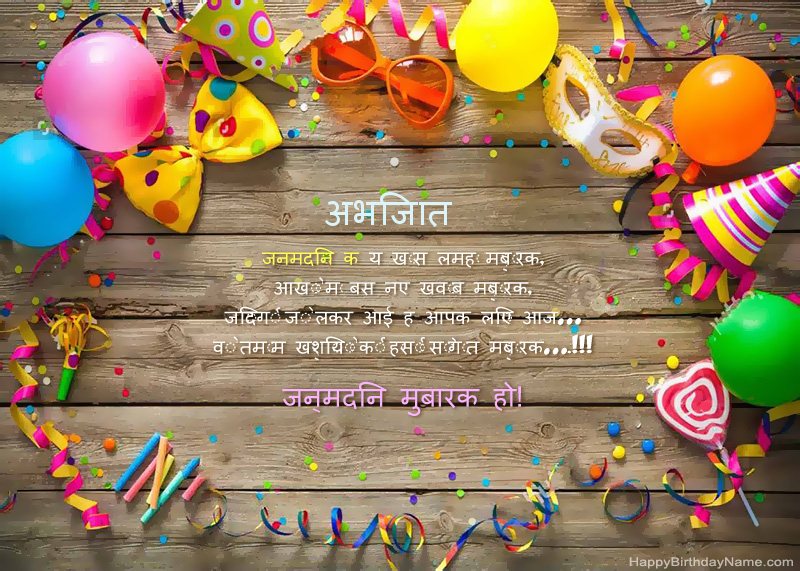 अभजिात
जनमदनि क य खास लमह मबारक,
आखो म बस नए खवाब मबारक,
जदिगी जो लेकर आई ह आपक लएि आज...
वो तमाम खशयिो की हसी सागात मबारक...!!!
जन्मदनि मुबारक हो!
HappyBirthdayName.com